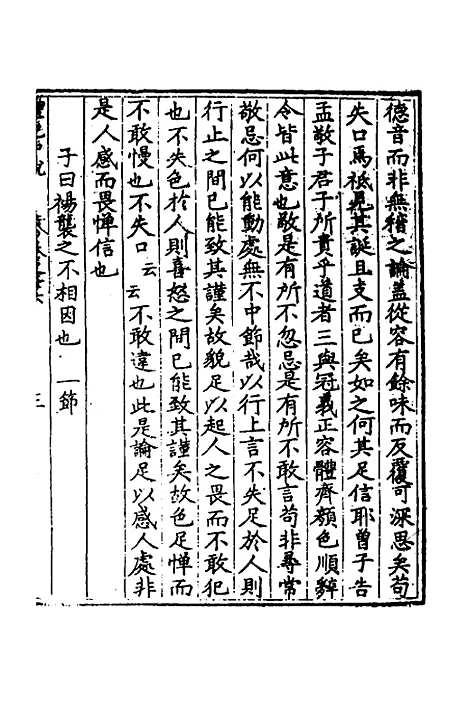 德音而非無稽之論蓋從容有餘味而反覆可深思矣苟
失口焉祗見其誕且支而已矣如之何其足信耶曾子告
孟敬子君子所貴乎道者三與冠義正容體齊顏色順辭
令皆此意也敬是有所不忽忌是有所不敢言苟非尋常
敬忌何以能動處無不中節哉以行上言不失足於人則
行止之間已能致其謹矣故貌足以起人之畏而不敢犯
也不失色於人則喜怒之間已能致其謹矣故色足憚而
不敢慢也不失口云云不敢違也此是論足以感人處非
是人感而畏憚信也
子曰裼襲之不相因也 一節
三